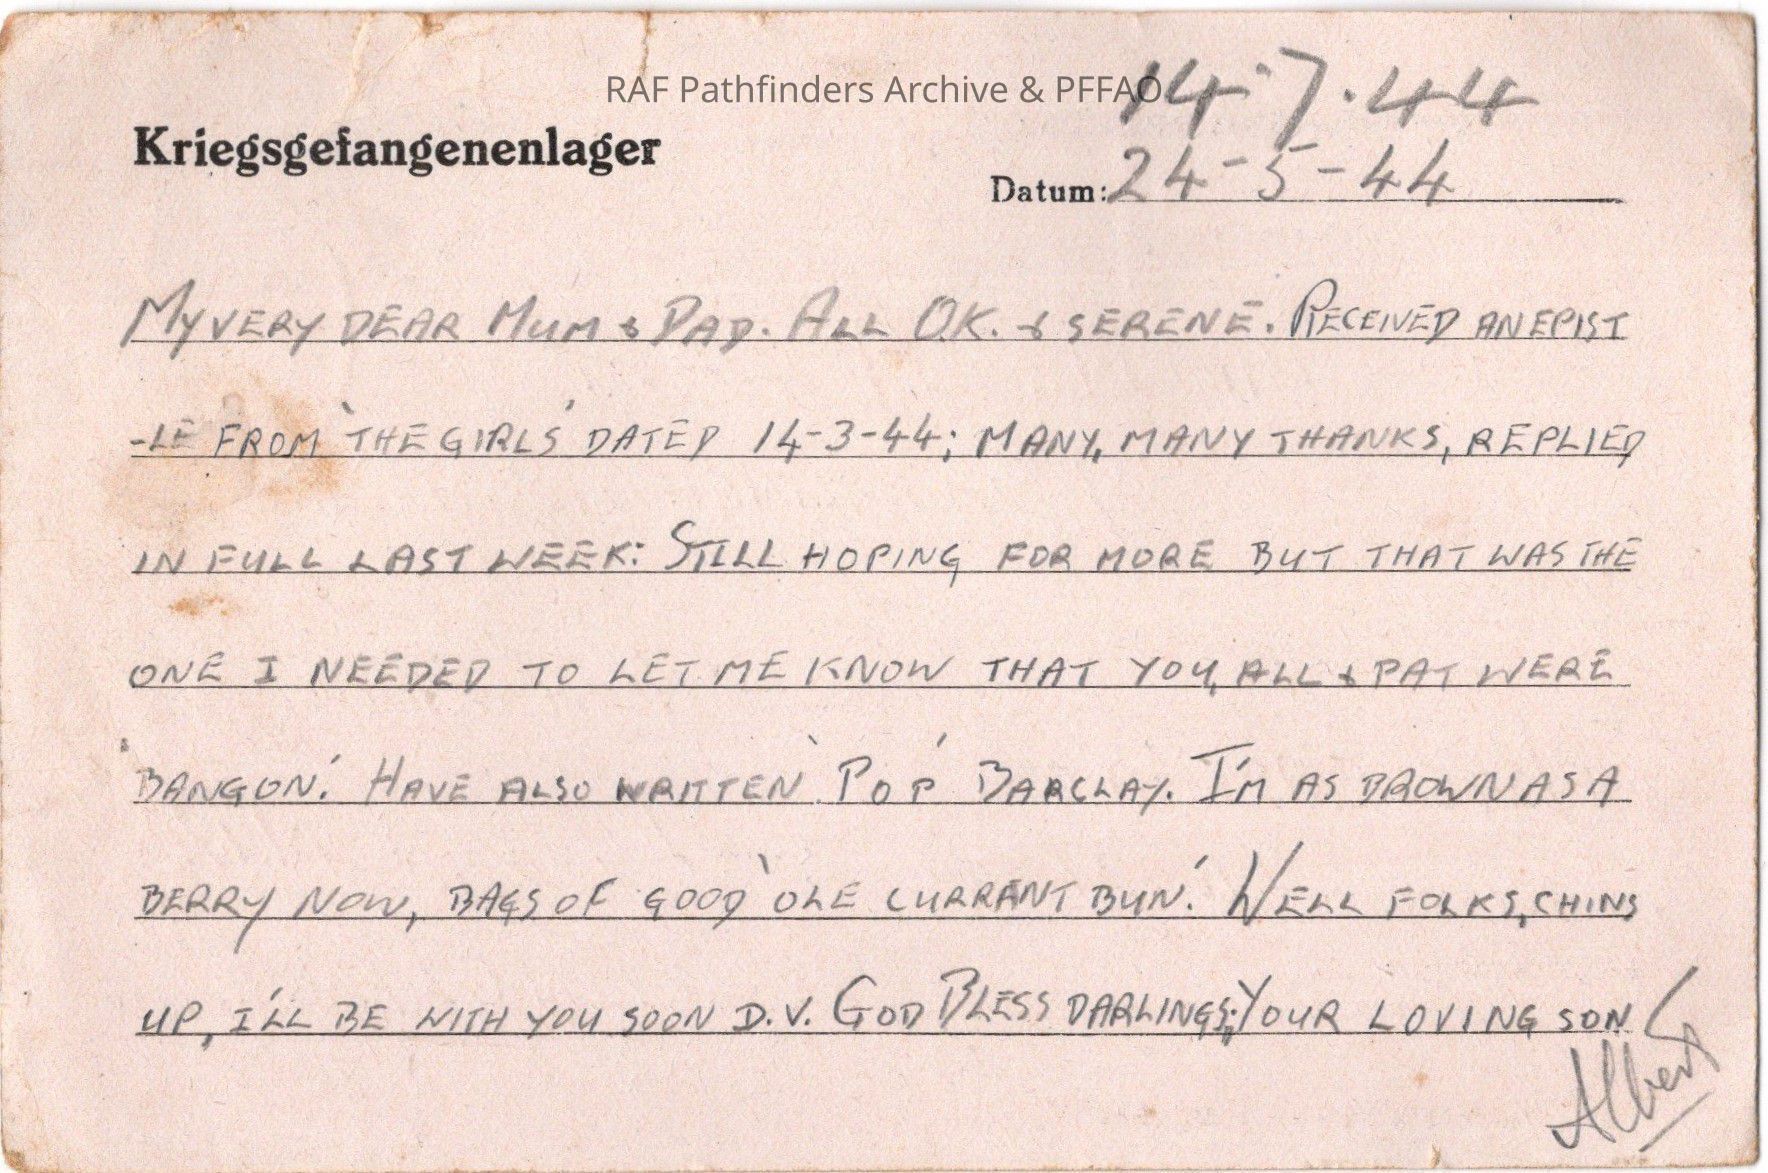 RAF Pathfinders Archive & PFFAO
14.7.44
Kriegsgefangenenlager
Datum: 24-5-44
MY VERY DEAR MUM & DAD. ALL O.K. & SERENE. RECEIVED AN EPIST
-LE FROM 'THE GIRLS' DATED 14-3-44; MANY, MANY THANKS, REPLIED
IN FULL LAST WEEK: STILL HOPING FOR MORE BUT THAT WAS THE
ONE I NEEDED TO LET ME KNOW THAT YOU, ALL & PAT WERE
'BANG ON.' HAVE ALSO WRITTEN 'POP' BARCLAY. I'M AS BROWN AS A
BERRY NOW, BAGS OF GOOD 'OLE CURRANT BUN.' WELL FOLKS, CHINS
UP, I'LL BE WITH YOU SOON D.V. GOD BLESS DARLINGS; YOUR LOVING SON
Albert